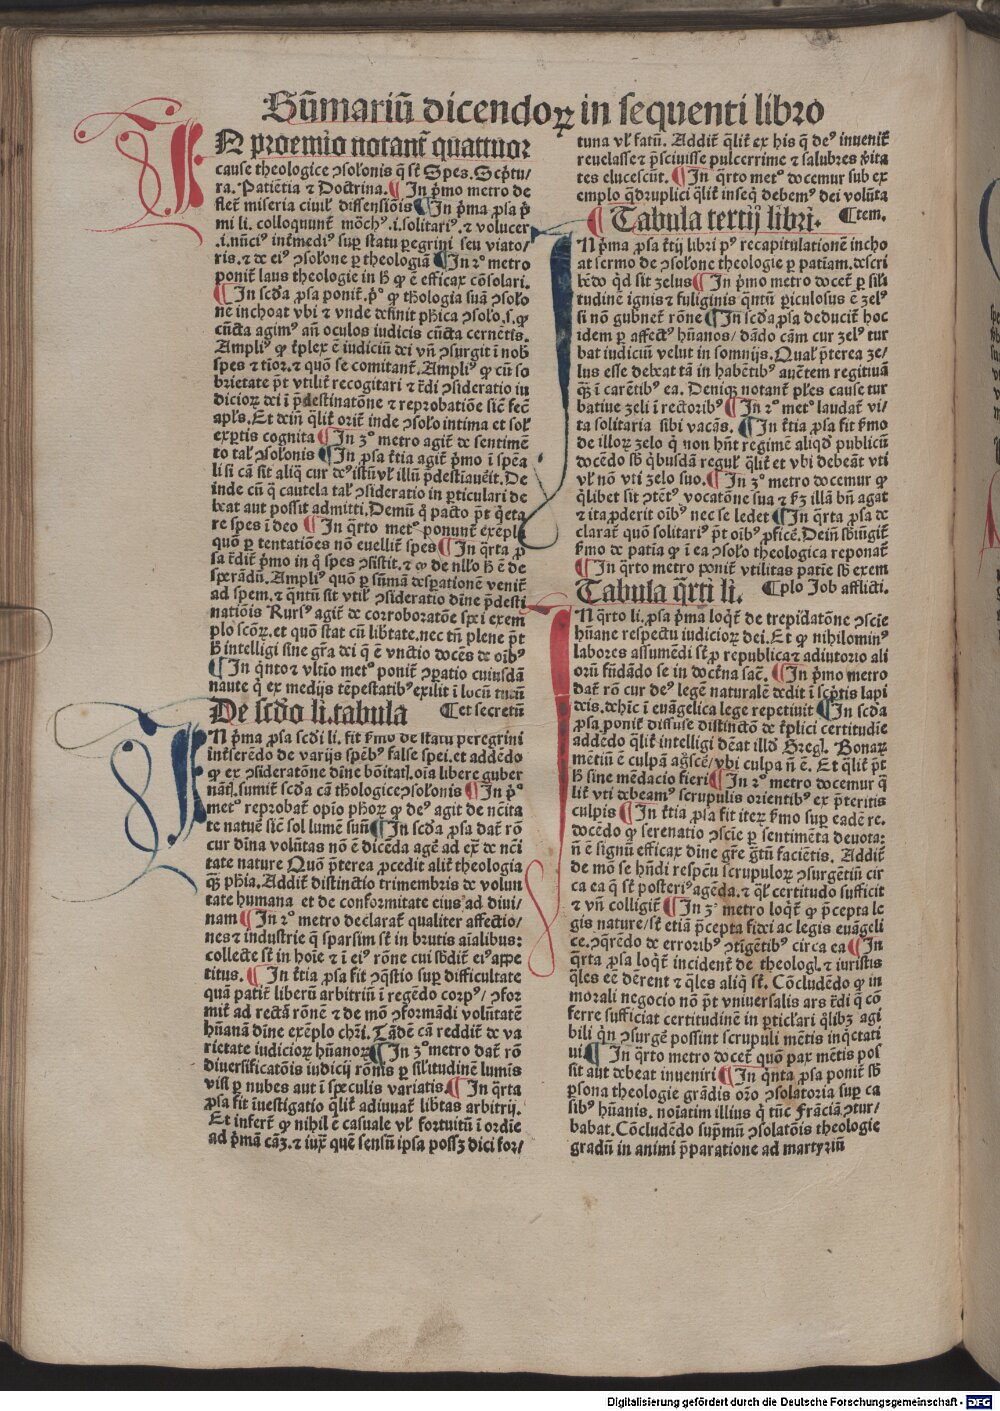 Sūmariū dicendoꝝ in sequenti libro
IN proemio notant᷑ quattuor
cause theologice ꝯsolonis q̄ st̄ Spes. Scp̄tu/
ra. Patiētia ⁊ Doctrina. ¶ In p̄mo metro de
flet᷑ miseria ciuil᷑ dissensiōis ¶ In p̄ma ꝓsa p̄
mi li. colloquunt᷑ mōchꝰ .i. solitariꝰ .⁊ volucer
.i. nūciꝰ int᷑mediꝰ sup̲ statu ꝑegrini seu viato/
ris. ⁊ de eiꝰ ꝯsolone ꝑ theologiā ¶ In 2° metro
ponit᷑ laus theologie in h̄ ꝙ ē efficax cōsolari.
¶ In scd̄a ꝓsa ponit᷑. pᵒ ꝙ th̄ologia suā ꝯsolo
nē inchoat vbi ⁊ vnde definit ph̄ica ꝯsolo. s. ꝙ
cūcta agimꝰ an̄ oculos iudicis cūcta cernētis.
Ampliꝰ ꝙ t᷑plex ē iudiciū dei vn̄ ꝯsurgit ī nob᷑
spes ⁊ tīor. ⁊ quō se comitant᷑. Ampliꝰ ꝙ cū so
brietate p̄t vtilit᷑ recogitari ⁊ t᷑di ꝯsideratio iu
dicioꝝ dei ī p̄destinatōne ⁊ reprobatiōe sic̄ fec̄
apl̄s. Et dein̄ q̄lit᷑ orit᷑ inde ꝯsolo intima et sol᷑
exꝑtis cognita ¶ In 3° metro agit᷑ de sentimē
to tal᷑ ꝯsolonis ¶ In ꝓsa t᷑tia agit᷑ p̄mo ī spēa
li si cā sit aliq̄ cur deꝰ istū vl᷑ illū p̄destiauēit. De
inde cū q̄ cautela tal᷑ ꝯsideratio in ꝑticulari de
beat aut possit admitti. Demū q̊ pacto p̄t q̇eta
re spes ī deo ¶ In q̄rto metᵒ ponunt᷑ exēpla
quō ꝑ tentatiōes nō euellit᷑ spes ¶ In q̄rta ꝓ
sa t᷑dit᷑ p̄mo in q̊ spes ꝯsistit. ⁊ ꝙ de nllo h̄ ē de
sperādū. Ampliꝰ quō ꝑ sūmā desꝑationē venit᷑
ad spem. ⁊ q̄ntū sit vtil᷑ ꝯsideratio dīne p̄desti
natiōis Rursꝰ agit᷑ de corroboratōe spei exem
plo scōꝝ. et quō stat cū lib̄tate. nec tn̄ plene p̄t
h̄ intelligi sine gr̄a dei q̄ ē vnctio docēs de oībꝰ
¶ In q̄nto ⁊ vltīo metᵒ ponit᷑ ꝯꝑatio cuiusdā
naute q̇ ex medijs tēpestatibꝰ exilit ī locū tutū
De scd̄o li. tabula ¶ et secretū
IN p̄ma ꝓsa scd̄i li. fit f᷑mo de statu peregrini
int᷑serēdo de varijs spēbꝰ false spei. et addēdo
ꝙ ex ꝯsideratōne dīne bōitat᷑. oīa libere guber
nāt᷑. sumit᷑ scd̄a cā th̄ologice ꝯsolonis ¶ In pᵒ
metᵒ reprobat᷑ opīo ph̄oꝝ ꝙ deꝰ agit de nēcita
te natue᷑ sic̄ sol lumē suū ¶ In scd̄a ꝓsa dat᷑ rō
cur dīna volūtas nō ē dicēda agē ad exᵃ de nēi
tate nature Quō p̄terea ꝓcedit alit᷑ theologia
qꝫ ph̄ia. Addit᷑ distinctio trimembris de volun
tate humana et de conformitate eius ad diui/
nam ¶ In 2° metro declarat᷑ qualiter affectio/
nes ⁊ industrie q̄ sparsim st̄ in brutis aīalibus:
collecte st̄ in hoīe ⁊ ī eiꝰ rōne cui sb̄dit᷑ eiꝰ appe
titus. ¶ In t᷑tia ꝓsa fit ꝯq̄stio sup̲ difficultate
quā patit᷑ liberū arbitriū ī regēdo corpꝰ/ ꝯfor
mit᷑ ad rectā rōnē ⁊ de mō ꝯformādi volūtatē
hūanā dīne exēplo chr̄i. Tādē cā reddit᷑ de va
rietate iudicioꝝ hūanoꝝ ¶ In 3° metro dat᷑ rō
diuersificatōis iudicij rōnis ꝑ sil᷑itudinē lumīs
visi ꝑ nubes aut ī speculis variatis. ¶ In q̄rta
ꝓsa fit īuestigatio q̄lit᷑ adiuuat᷑ lib̄tas arbitrij.
Et infert᷑ ꝙ nihil ē casuale vl᷑ fortuitū ī ordīe
ad p̄mā cāꝫ. ⁊ iuxᵃ quē sensū ipsa possꝫ dici for/
tuna vl᷑ fatū. Addit᷑ q̄lit᷑ ex his q̄ deꝰ inuenit᷑
reuelasse ⁊ p̄sciuisse pulcerrime ⁊ salubres v̄ita
tes elucescūt. ¶ In q̄rto metᵒ docemur sub ex
emplo q̄druplici q̄lit᷑ inseq̇ debemꝰ dei volūta
¶ Tabula tertij libri. ¶ tem.
IN p̄ma ꝓsa t᷑tij libri pꝰ recapitulationē incho
at sermo de ꝯsolone theologie ꝑ patīam. descri
bēdo q̇d sit zelus ¶ In p̄mo metro docet᷑ ꝑ sili
tudinē ignis ⁊ fuliginis q̄ntū ꝑiculosus ē zelꝰ
si nō gubnet᷑ rōne ¶ In scd̄a ꝓsa deducit᷑ hoc
idem ꝑ affectꝰ hūanos/ dādo cām cur zelꝰ tur
bat iudiciū velut in somnijs. Qual᷑ p̄terea ze/
lus esse debeat tā in habētibꝰ auc̄tem regitiuā
qꝫ ī carētibꝰ ea. Deniqꝫ notant᷑ pl̄es cause tur
batiue zeli ī rectoribꝰ ¶ In 2° metᵒ laudat᷑ vi/
ta solitaria sibi vacās. ¶ In t᷑tia ꝓsa fit f᷑mo
de illoꝝ zelo q̇ non hn̄t regimē aliqd̄ publicū
docēdo sb̄ q̇busdā regul᷑ q̄lit᷑ et vbi debeāt vti
vl᷑ nō vti zelo suo. ¶ In 3° metro docemur ꝙ
q̇libet sit ꝯtētꝰ vocatōne sua ⁊ f᷑ꝫ illā bn̄ agat
⁊ ita ꝓderit oībꝰ nec se ledet ¶ In q̄rta ꝓsa de
clarat᷑ quō solitariꝰ p̄t oībꝰ ꝓficē. Dein̄ sb̄iūgit᷑
f᷑mo de patīa ꝙ ī ea ꝯsolo theologica reponat᷑
¶ In q̄rto metro ponit᷑ vtilitas patīe sb̄ exem
Tabula q̄rti li. ¶ plo Job afflicti.
IN q̄rto li. ꝓsa p̄ma loq̇t᷑ de trepidatōne ꝯsciē
hūane respectu iudicioꝝ dei. Et ꝙ nihilominꝰ
labores assumēdi st̄ ꝓ republica ⁊ adiutorio ali
orū fūdādo se in doct᷑na sac̄. ¶ In p̄mo metro
dat᷑ rō cur deꝰ legē naturalē dedit ī scp̄tis lapi
deis. dehīc ī euāgelica lege repetiuit ¶ In scd̄a
ꝓsa ponit᷑ diffuse distinctō de t᷑plici certitudīe
addēdo q̄lit᷑ intelligi dēat illd̄ Gregl᷑. Bonaꝝ
mētiū ē culpā ag̊scē/ vbi culpa n̄ ē. Et q̄lit᷑ p̄t
h̄ sine mēdacio fieri ¶ In 2° metro docemur q̄
lit᷑ vti debeamꝰ scrupulis orientibꝰ ex p̄teritis
culpis ¶ In t᷑tia ꝓsa fit iteꝝ f᷑mo sup̲ eadē re.
docēdo ꝙ serenatio ꝯscīe ꝑ sentimēta deuota:
n̄ ē signū efficax dīne gr̄e gr̄tū faciētis. Addit᷑
de mō se hn̄di respēu scrupuloꝝ ꝯsurgētiū cir
ca ea q̄ st̄ posteriꝰ agēda. ⁊ q̄l᷑ certitudo sufficit
⁊ vn̄ colligit᷑ ¶ In 3° metro loq̇t᷑ ꝙ p̄cepta le
gis nature/ st̄ etiā p̄cepta fidei ac legis euāgeli
ce. ꝯq̄rēdo de erroribꝰ ꝯtīgētibꝰ circa ea ¶ In
q̄rta ꝓsa loq̇t᷑ incident᷑ de theologl᷑. ⁊ iuristis
q̄les eē dērent ⁊ q̄les aliq̇ st̄. Cōcludēdo ꝙ in
morali negocio nō p̄t vniuersalis ars t᷑di q̄ cō
ferre sufficiat certitudinē in ꝑticl᷑ari q̇libꝫ agi
bili q̇n ꝯsurgē possint scrupuli mētis inq̇etati
ui ¶ In q̄rto metro docet᷑ quō pax mētis pos
sit aut debeat inueniri ¶ In q̄nta ꝓsa ponit᷑ sb̄
ꝑsona theologie grādis orō ꝯsolatoria sup̲ ca
sibꝰ hūanis. noīatim illius q̇ tūc Frāciā ꝯtur/
babat. Cōcludēdo sup̄mū ꝯsolatōis theologie
gradū in animi p̄paratione ad martyriū
Digitalisierung gefördert durch die Deutsche Forschungsgemeinschaft - DFG